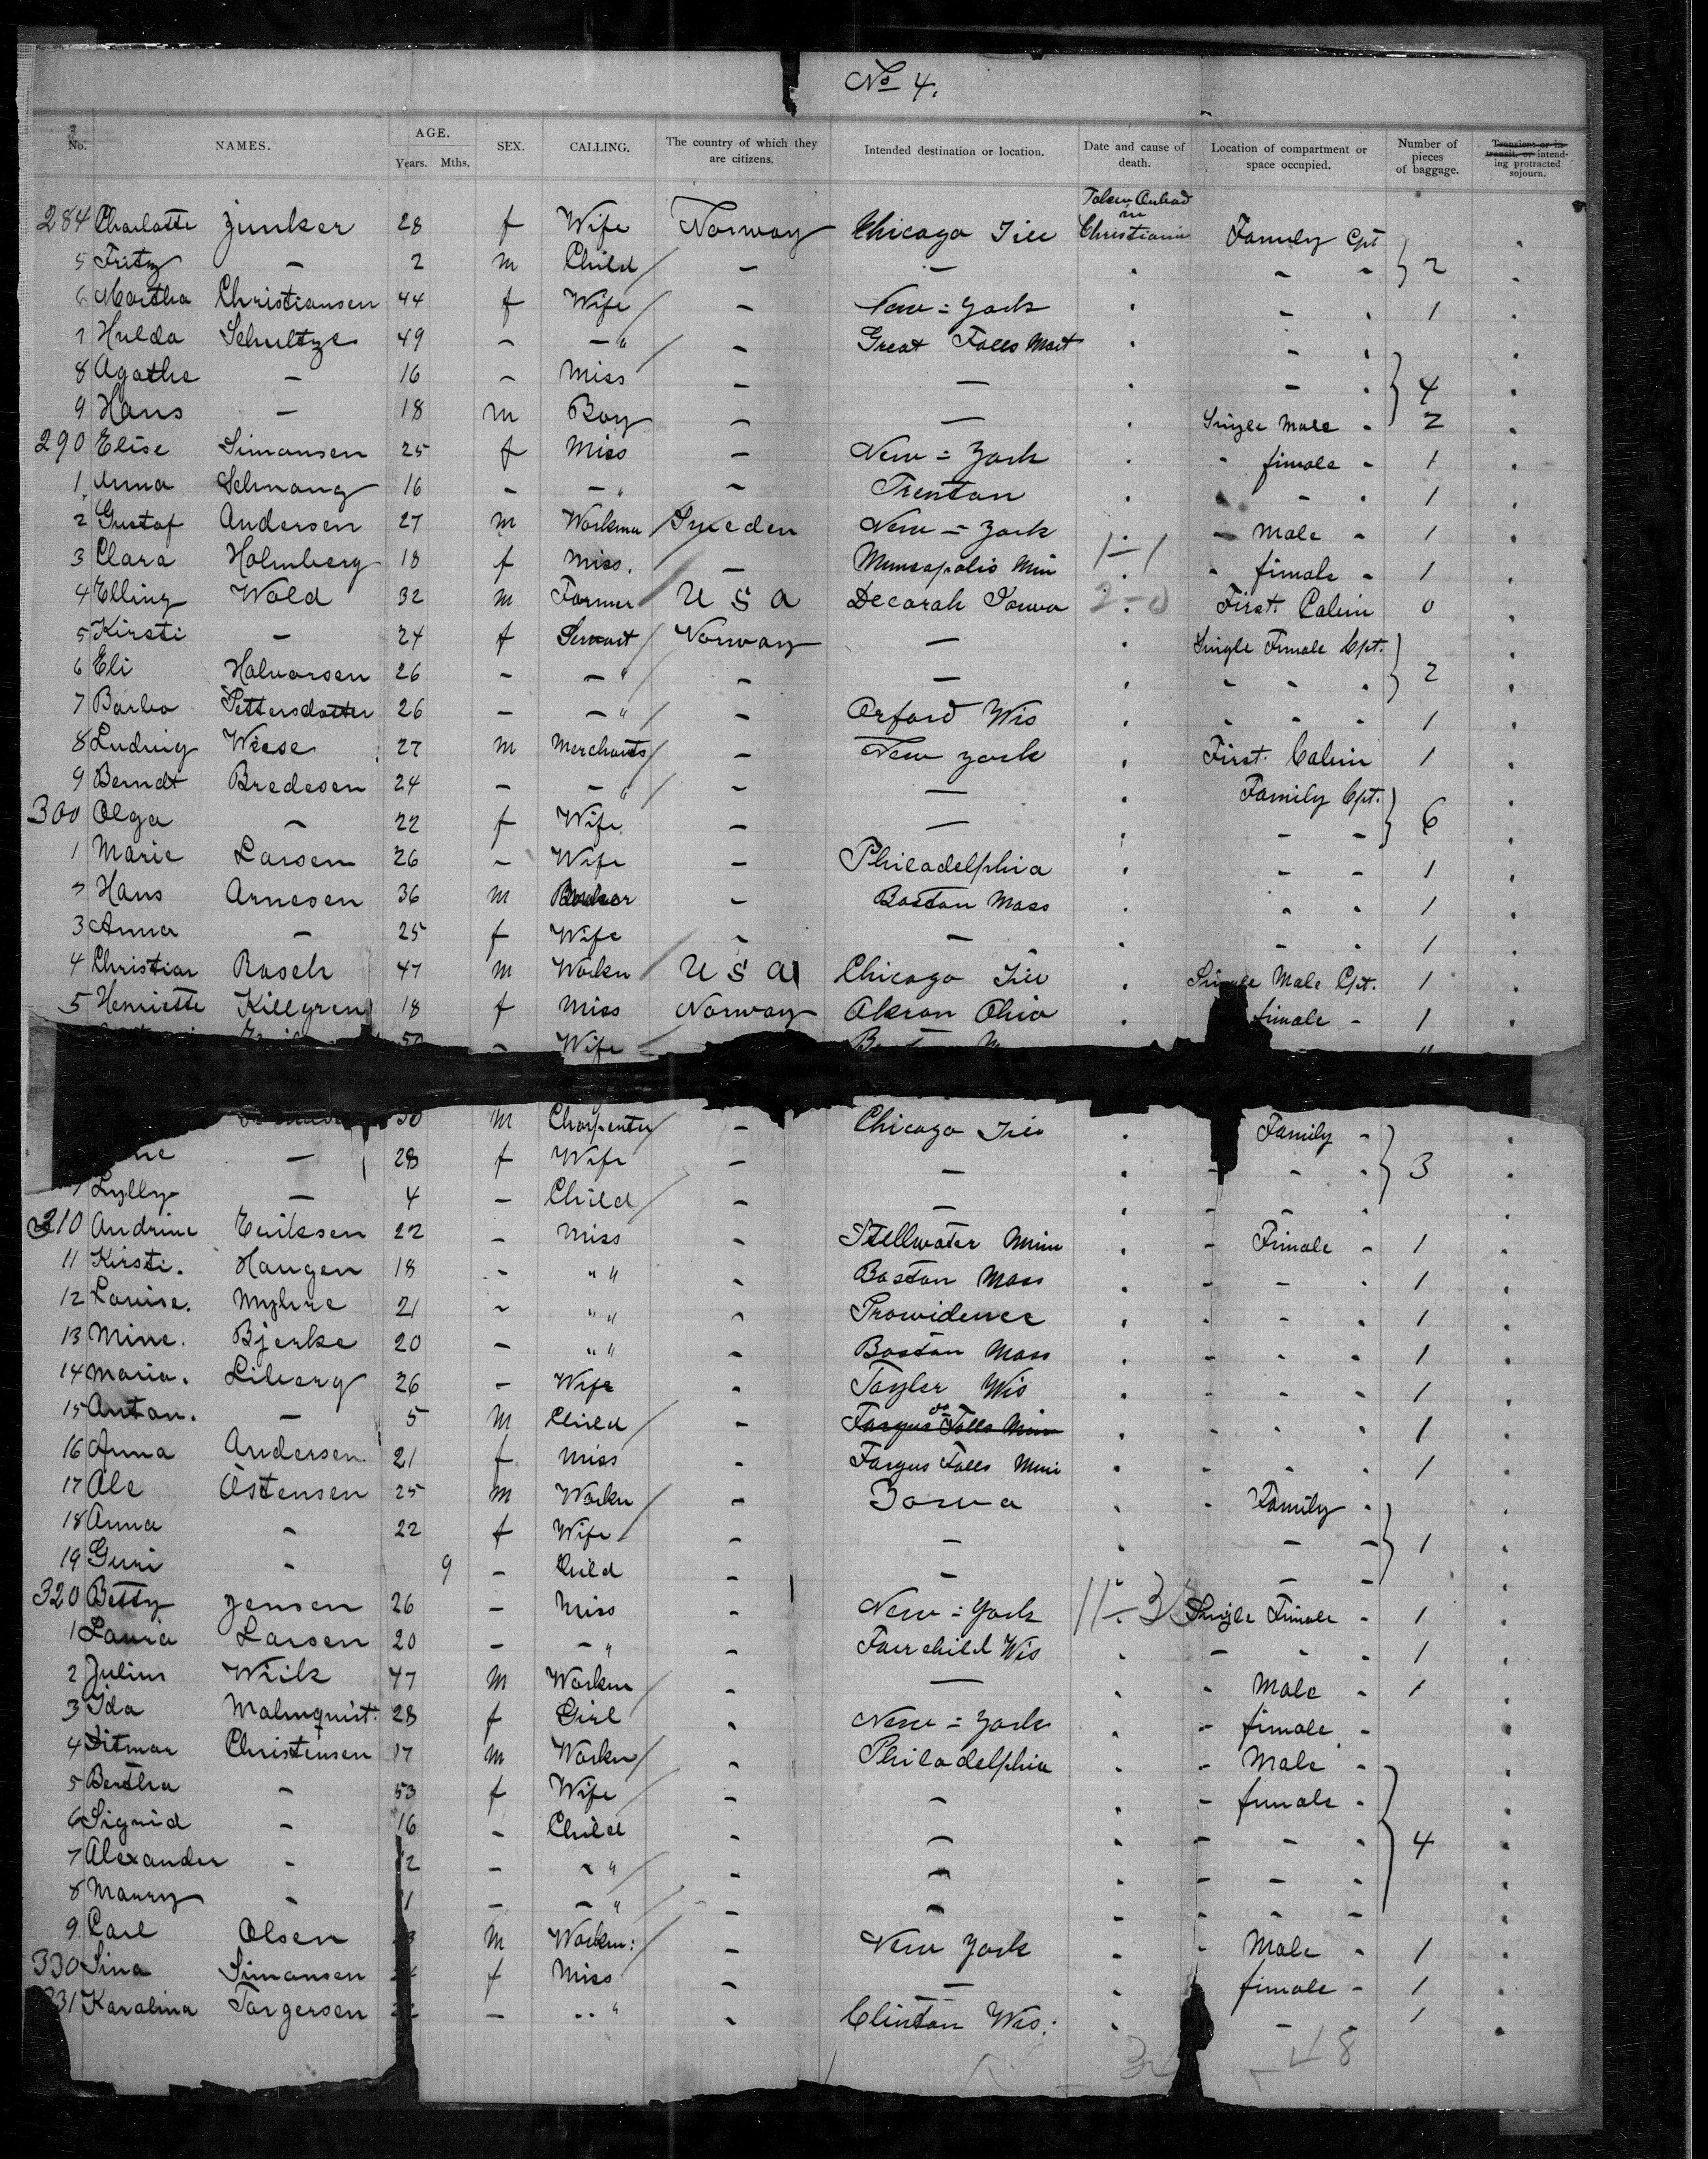 No 4.
No. NAMES. AGE. Years. Mths. SEX. CALLING. The country of which they are citizens. Intended destination or location. Date and cause of death. Location of compartment or space occupied. Number of pieces of baggage. Transient or in transit, or intending protracted sojourn.
284 Charlotte Junker 28 f Wife Norway Chicago Ill Taken Onbord in Christiania Family Cpt
5 Fritz - 2 m Child - - - - } 2
6 Martha Christiansen 44 f Wife - New=York - 1
7 Hulda Schultze 49 - - " - Great Falls Mont -
8 Agathe - 16 - Miss - - - } 4
9 Hans - 18 m Boy - - Single Male - 2
290 Elise Simonsen 25 f Miss - New=York - female - 1
1 Anna Schnang 16 - - " - Trenton - - 1
2 Gustaf Andersen 27 m Workm Sweden New=York - Male - 1
3 Clara Holmberg 18 f Miss. - Minneapolis Min 1-1 - female - 1
4 Elling Wold 32 m Farmer U S a Decorah Iowa 2-0 First Cabin 0
5 Kirsti - 24 f Servant Norway - Single Female Cpt.
6 Eli Halvorsen 26 - - " - - - - } 2
7 Barbo Pettersdatter 26 - - " - Orford Wis - - 1
8 Ludvig Wiese 27 m Merchants - New York First Cabin 1
9 Berndt Bredesen 24 - - " - - Family Cpt.
300 Olga - 22 f Wife - - - - } 6
1 Marie Larsen 26 - Wife - Philadelphia - - 1
2 Hans Arnesen 36 m - Boston Mass - - 1
3 Anna - 25 f Wife - - - - 1
4 Christian Rasch 47 m Workn U S a Chicago Ill Single Male Cpt. 1
5 Henriette Killgren 18 f Miss Norway Akron Ohio female - 1
50 - Wife
30 m Charpenter - Chicago Ill Family -
- 28 f Wife - - - - } 3
9 Lylly - 4 - Child - - - -
310 Andrine Eriksen 22 - Miss - Stellwater Minn - Female - 1
11 Kirsti. Haugen 18 - " " - Boston Mass - - 1
12 Louise. Myhre 21 - " " - Prowidence - - 1
13 Mine. Bjerke 20 - " " - Boston Mass - - 1
14 Maria. Liberg 26 - Wife - Tayler Wis - - 1
15 Anton. - 5 m Child - do Fargus Falls Minn - - 1
16 Anna Andersen 21 f Miss - Fargus Falls Minn - - 1
17 Ole Ostensen 25 m Workn - Iowa - Family -
18 Anna - 22 f Wife - - - - } 1
19 Guri - 9 - Child - - - -
320 Betty Jensen 26 - Miss - New=York 11-3 Single Female - 1
1 Laura Larsen 20 - - " - Fairchild Wis - - 1
2 Julius Wiik 47 m Workm - - - Male - 1
3 Ida Malmquist. 28 f Girl - New=York - female -
4 Ditmar Christensen 17 m Workn - Philadelphia - Male -
5 Bertha - 53 f Wife - - - female -
6 Sigrid - 16 - Child - - - - } 4
7 Alexander - 12 - - " - - - -
8 Maury - 1 - - " - - - -
9 Carl Olsen m Workm: - New York - Male - 1
330 Sina Simonsen f Miss - - female - 1
331 Karolina Torgersen - - " - Clinton Wis. - - 1
48